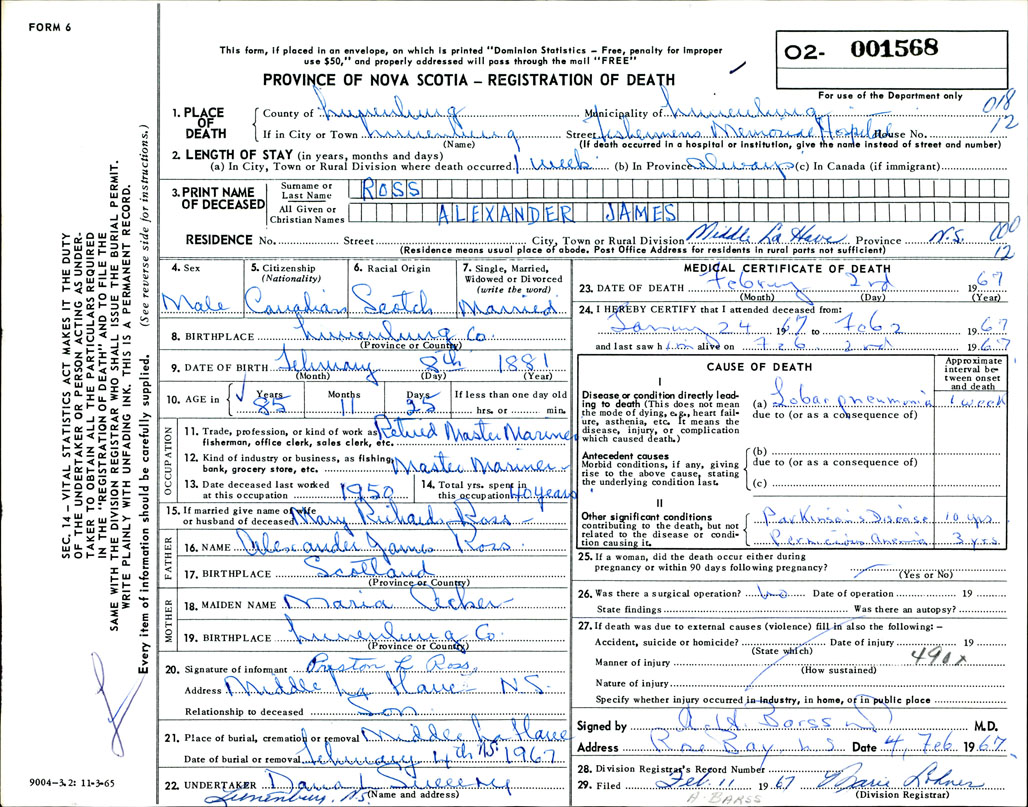 FORM 6
This form, if placed in an envelope, on which is printed "Dominion Statistics – Free, penalty for improper
use $50," and properly addressed will pass through the mail "FREE"
PROVINCE OF NOVA SCOTIA – REGISTRATION OF DEATH
02- 001568
For use of the Department only
018
12
1. PLACE OF DEATH
County of Lunenburg Municipality of Lunenburg
If in City or Town Lunenburg Street Fishermens Memorial Hospital House No.
(Name) (If death occurred in a hospital or institution, give the name instead of street and number)
2. LENGTH OF STAY (in years, months and days)
(a) In City, Town or Rural Division where death occurred 1 week (b) In Province always (c) In Canada (if immigrant)
3. PRINT NAME OF DECEASED
Surname or Last Name ROSS
All Given or Christian Names ALEXANDER JAMES
RESIDENCE No. Street City, Town or Rural Division Middle La Have Province N.S.
000
12
(Residence means usual place of abode. Post Office Address for residents in rural parts not sufficient)
4. Sex
Male
5. Citizenship (Nationality)
Canadian
6. Racial Origin
Scotch
7. Single, Married, Widowed or Divorced (write the word)
Married
8. BIRTHPLACE Lunenburg Co.
(Province or Country)
9. DATE OF BIRTH February 8th 1881
(Month) (Day) (Year)
10. AGE in Years Months Days If less than one day old
85 11 25 hrs. or min.
OCCUPATION
11. Trade, profession, or kind of work as fisherman, office clerk, sales clerk, etc. Retired Master Mariner
12. Kind of industry or business, as fishing, bank, grocery store, etc. Master Mariner
13. Date deceased last worked at this occupation 1950
14. Total yrs. spent in this occupation 40 years
15. If married give name of wife or husband of deceased Mary Richards Ross
FATHER
16. NAME Alexander James Ross
17. BIRTHPLACE Scotland
(Province or Country)
MOTHER
18. MAIDEN NAME Maria
19. BIRTHPLACE Lunenburg Co.
(Province or Country)
20. Signature of informant Preston L Ross
Address Middle La Have N.S.
Relationship to deceased Son
21. Place of burial, cremation or removal Middle La Have N.S.
Date of burial or removal February 4th 1967
22. UNDERTAKER Dana L Sweeny
(Name and address)
Lunenburg, N.S.
MEDICAL CERTIFICATE OF DEATH
23. DATE OF DEATH February 2nd 1967
(Month) (Day) (Year)
24. I HEREBY CERTIFY that I attended deceased from:
January 24 1967 to Feb 2 1967
and last saw him alive on Feb 2nd 1967
CAUSE OF DEATH
Approximate interval between onset and death
I
Disease or condition directly leading to death (This does not mean the mode of dying, e.g., heart failure, asthenia, etc. It means the disease, injury, or complication which caused death.)
(a) Lobar pneumonia 1 week
due to (or as a consequence of)
Antecedent causes
Morbid conditions, if any, giving rise to the above cause, stating the underlying condition last.
(b)
due to (or as a consequence of)
(c)
II
Other significant conditions contributing to the death, but not related to the disease or condition causing it.
Parkinson's Disease 10 yrs
Pernicious Anemia 3 yrs.
25. If a woman, did the death occur either during
pregnancy or within 90 days following pregnancy?
(Yes or No)
26. Was there a surgical operation? No Date of operation 19
State findings Was there an autopsy?
27. If death was due to external causes (violence) fill in also the following: –
Accident, suicide or homicide? Date of injury 19
(State which)
Manner of injury 490x
(How sustained)
Nature of injury
Specify whether injury occurred in industry, in home, or in public place
Signed by A.H. Barss M.D.
Address Rose Bay N.S. Date 4, Feb. 1967
28. Division Registrar's Record Number
29. Filed Feb. 11 1967 Marie Lohnes
(Division Registrar)
A. BARSS
SEC. 14 – VITAL STATISTICS ACT MAKES IT THE DUTY
OF THE UNDERTAKER OR PERSON ACTING AS UNDER-
TAKER TO OBTAIN ALL THE PARTICULARS REQUIRED
IN THE "REGISTRATION OF DEATH" AND TO FILE THE
SAME WITH THE DIVISION REGISTRAR WHO SHALL ISSUE THE BURIAL PERMIT.
WRITE PLAINLY WITH UNFADING INK. THIS IS A PERMANENT RECORD.
Every item of information should be carefully supplied. (See reverse side for instructions.)
9004-3.2: 11-3-65